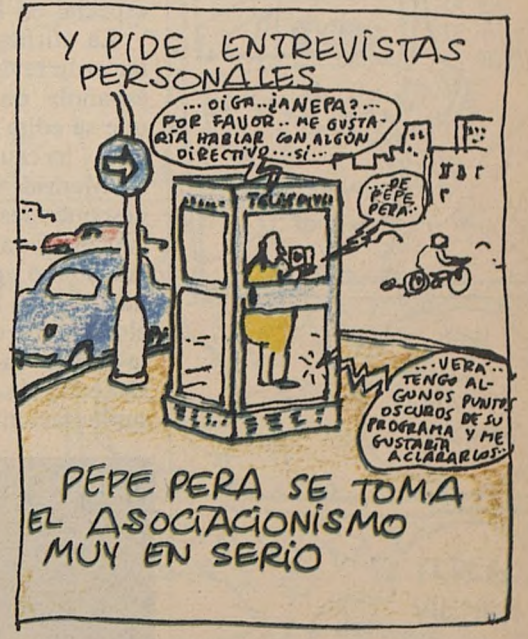 Y PIDE ENTREVISTAS
PERSONALES
... OIGA..¿ANEPA?...
POR FAVOR.. ME GUSTA-
RÍA HABLAR CON ALGÚN
DIRECTIVO...SÍ...
...DE
PEPE
PERA..
...VERÁ...
TENGO AL-
GUNOS PUNTOS
OSCUROS DE SU
PROGRAMA Y ME
GUSTARÍA
ACLARARLOS..
PEPE PERA SE TOMA
EL ASOCIACIONISMO
MUY EN SERIO